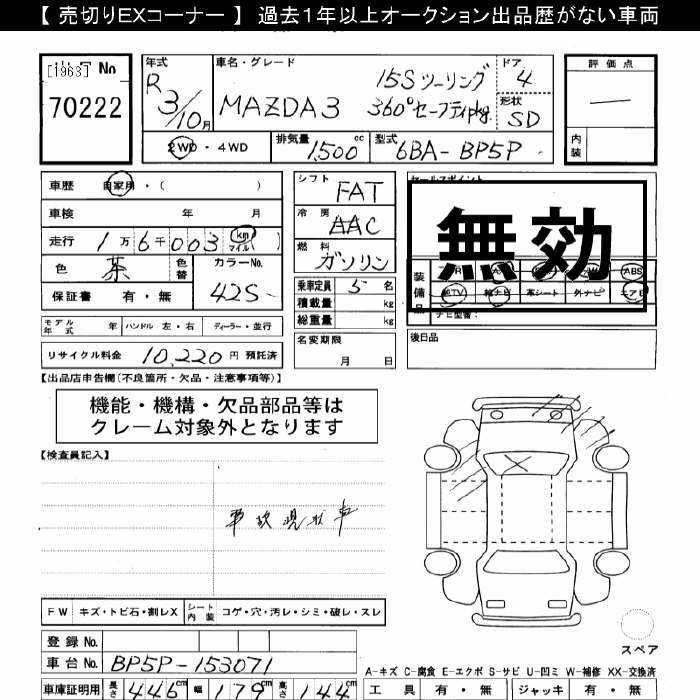 【 売切りEXコーナー 】 過去１年以上オークション出品歴がない車両
[1963] No
70222
年式
R 3/10月
車名・グレード
MAZDA3
15Sツーリング
360°セーフティpkg
ドア
4
形状
SD
評価点
内装
2WD・4WD
排気量
1,500 cc
型式
6BA-BP5P
車歴 自家用・( )
車検 年 月
走行 1万6千003 km マイル ( )
色 茶 色替 カラーNo. 42S
保証書 有・無
モデル年式 年 ハンドル 左・右 ディーラー・並行
リサイクル料金 10,220 円 預託済
シフト FAT
冷房 AAC
燃料 ガソリン
乗車定員 5 名
積載量 kg
総重量 kg
名変期限
月 日
セールスポイント
無効
装備品
ABS
純TV 純ナビ 革シート 外ナビ エアB
ナビ型番:
後日品
【出品店申告欄(不良箇所・欠品・注意事項等)】
機能・機構・欠品部品等は
クレーム対象外となります
【検査員記入】
事故現状車
FW キズ・トビ石・割レX シート内装 コゲ・穴・汚レ・シミ・破レ・スレ
登録 No.
車台 No. BP5P-153071
車庫証明用 長さ 446cm 幅 179cm 高さ 144
スペア
A-キズ C-腐食 E-エクボ S-サビ U-凹ミ W-補修 XX-交換済
工具 有・無 ジャッキ 有・無